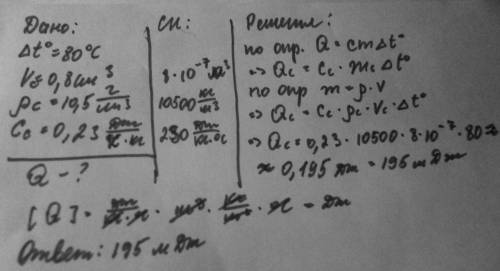 Дано:
Δt° = 80°C
V = 0,8 см³
ρс = 10,5 г/см³
Cс = 0,23 Дж/г·°C
Q - ?
СИ:
8·10⁻⁷ м³
10500 кг/м³
230 Дж/кг·°C
Решение:
по опр. Q = cmΔt°
⇒ Qс = Cс · mс Δt°
по опр m = ρ·V
⇒ Qс = Cс · ρс · Vс · Δt°
⇒ Qс = 0,23 · 10500 · 8·10⁻⁷ · 80 ≈
≈ 0,195 Дж = 195 мДж
[Q] = · м³ · кг/м³ · = Дж
Ответ: 195 мДж